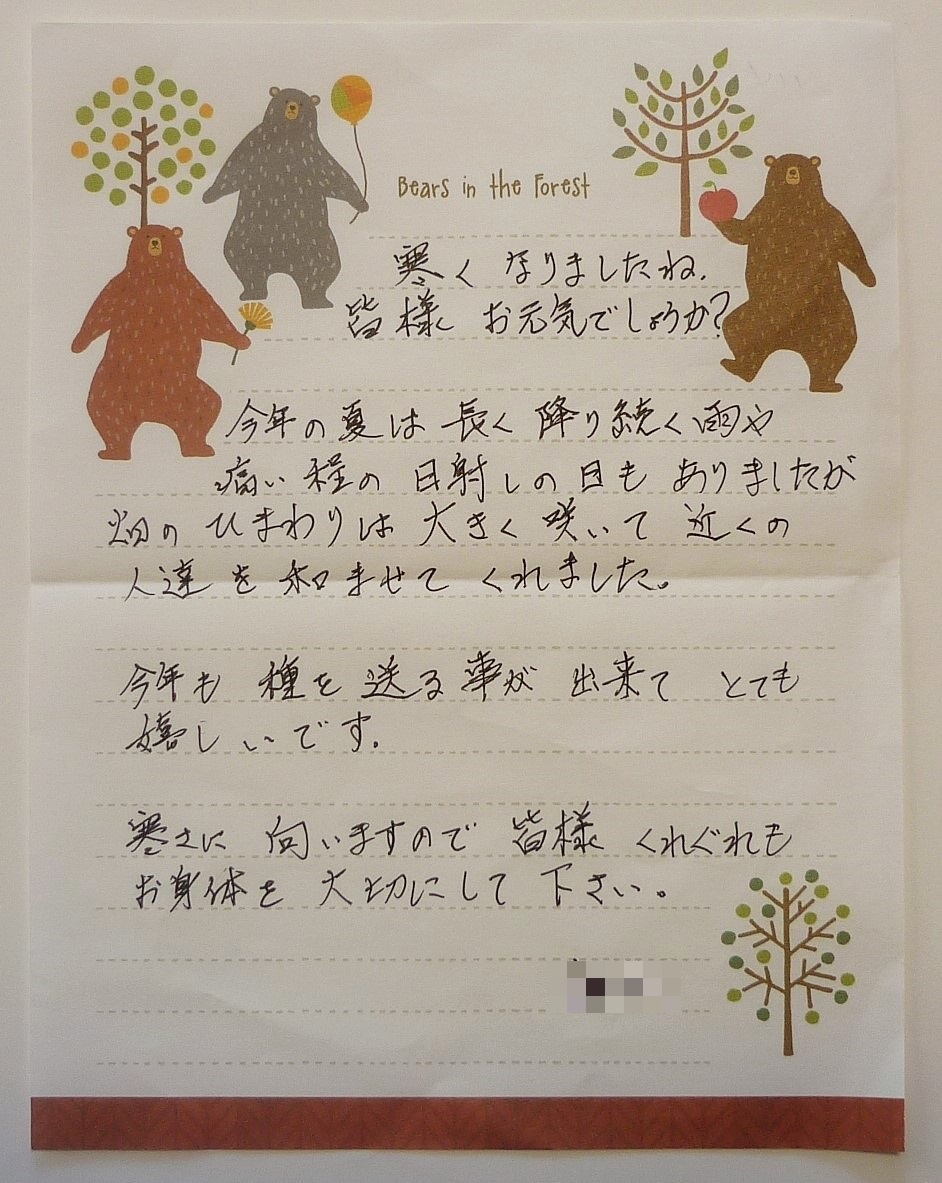 Bears in the Forest
寒くなりましたね.
皆様 お元気でしょうか?
今年の夏は 長く 降り続く雨や
痛い程の 日射しの日も ありましたが
畑の ひまわりは 大きく 咲いて 近くの
人達を 和ませて くれました。
今年も 種を 送る事が 出来て とても
嬉しいです.
寒さに 向いますので 皆様 くれぐれも
お身体を 大切にして 下さい。